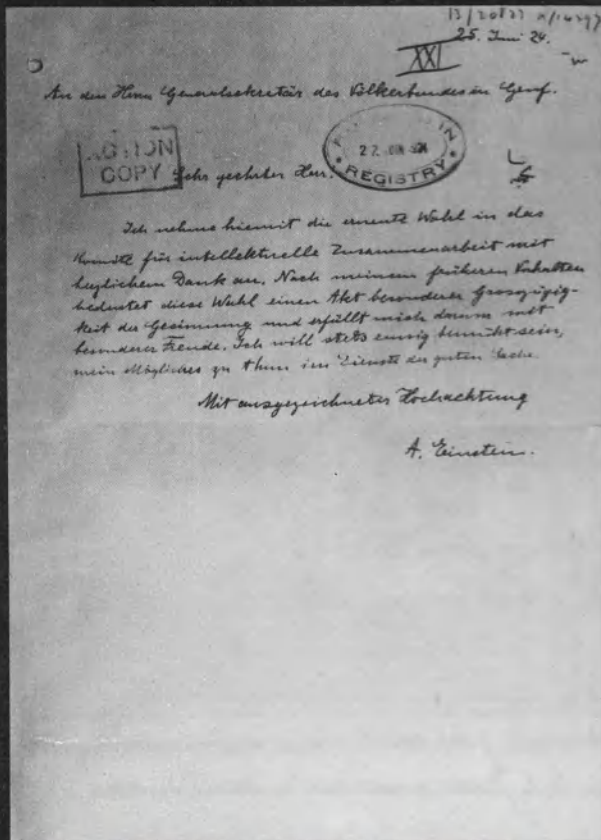 13/20823 x/14297
25. Juni 24.
XXI
An den Herrn Generalsekretär des Völkerbundes in Genf.
ACTION
COPY
27 JUN 1924
REGISTRY
Sehr geehrter Herr.
Ich nehme hiemit die erneute Wahl in das
Komité für intellektuelle Zusammenarbeit mit
herzlichem Dank an. Nach meinem früheren Verhalten
bedeutet diese Wahl einen Akt besonderer Grosszügig-
keit der Gesinnung und erfüllt mich darum mit
besonderer Freude. Ich will stets emsig bemüht sein,
mein Mögliches zu thun im Dienste der guten Sache.
Mit ausgezeichneter Hochachtung
A. Einstein.